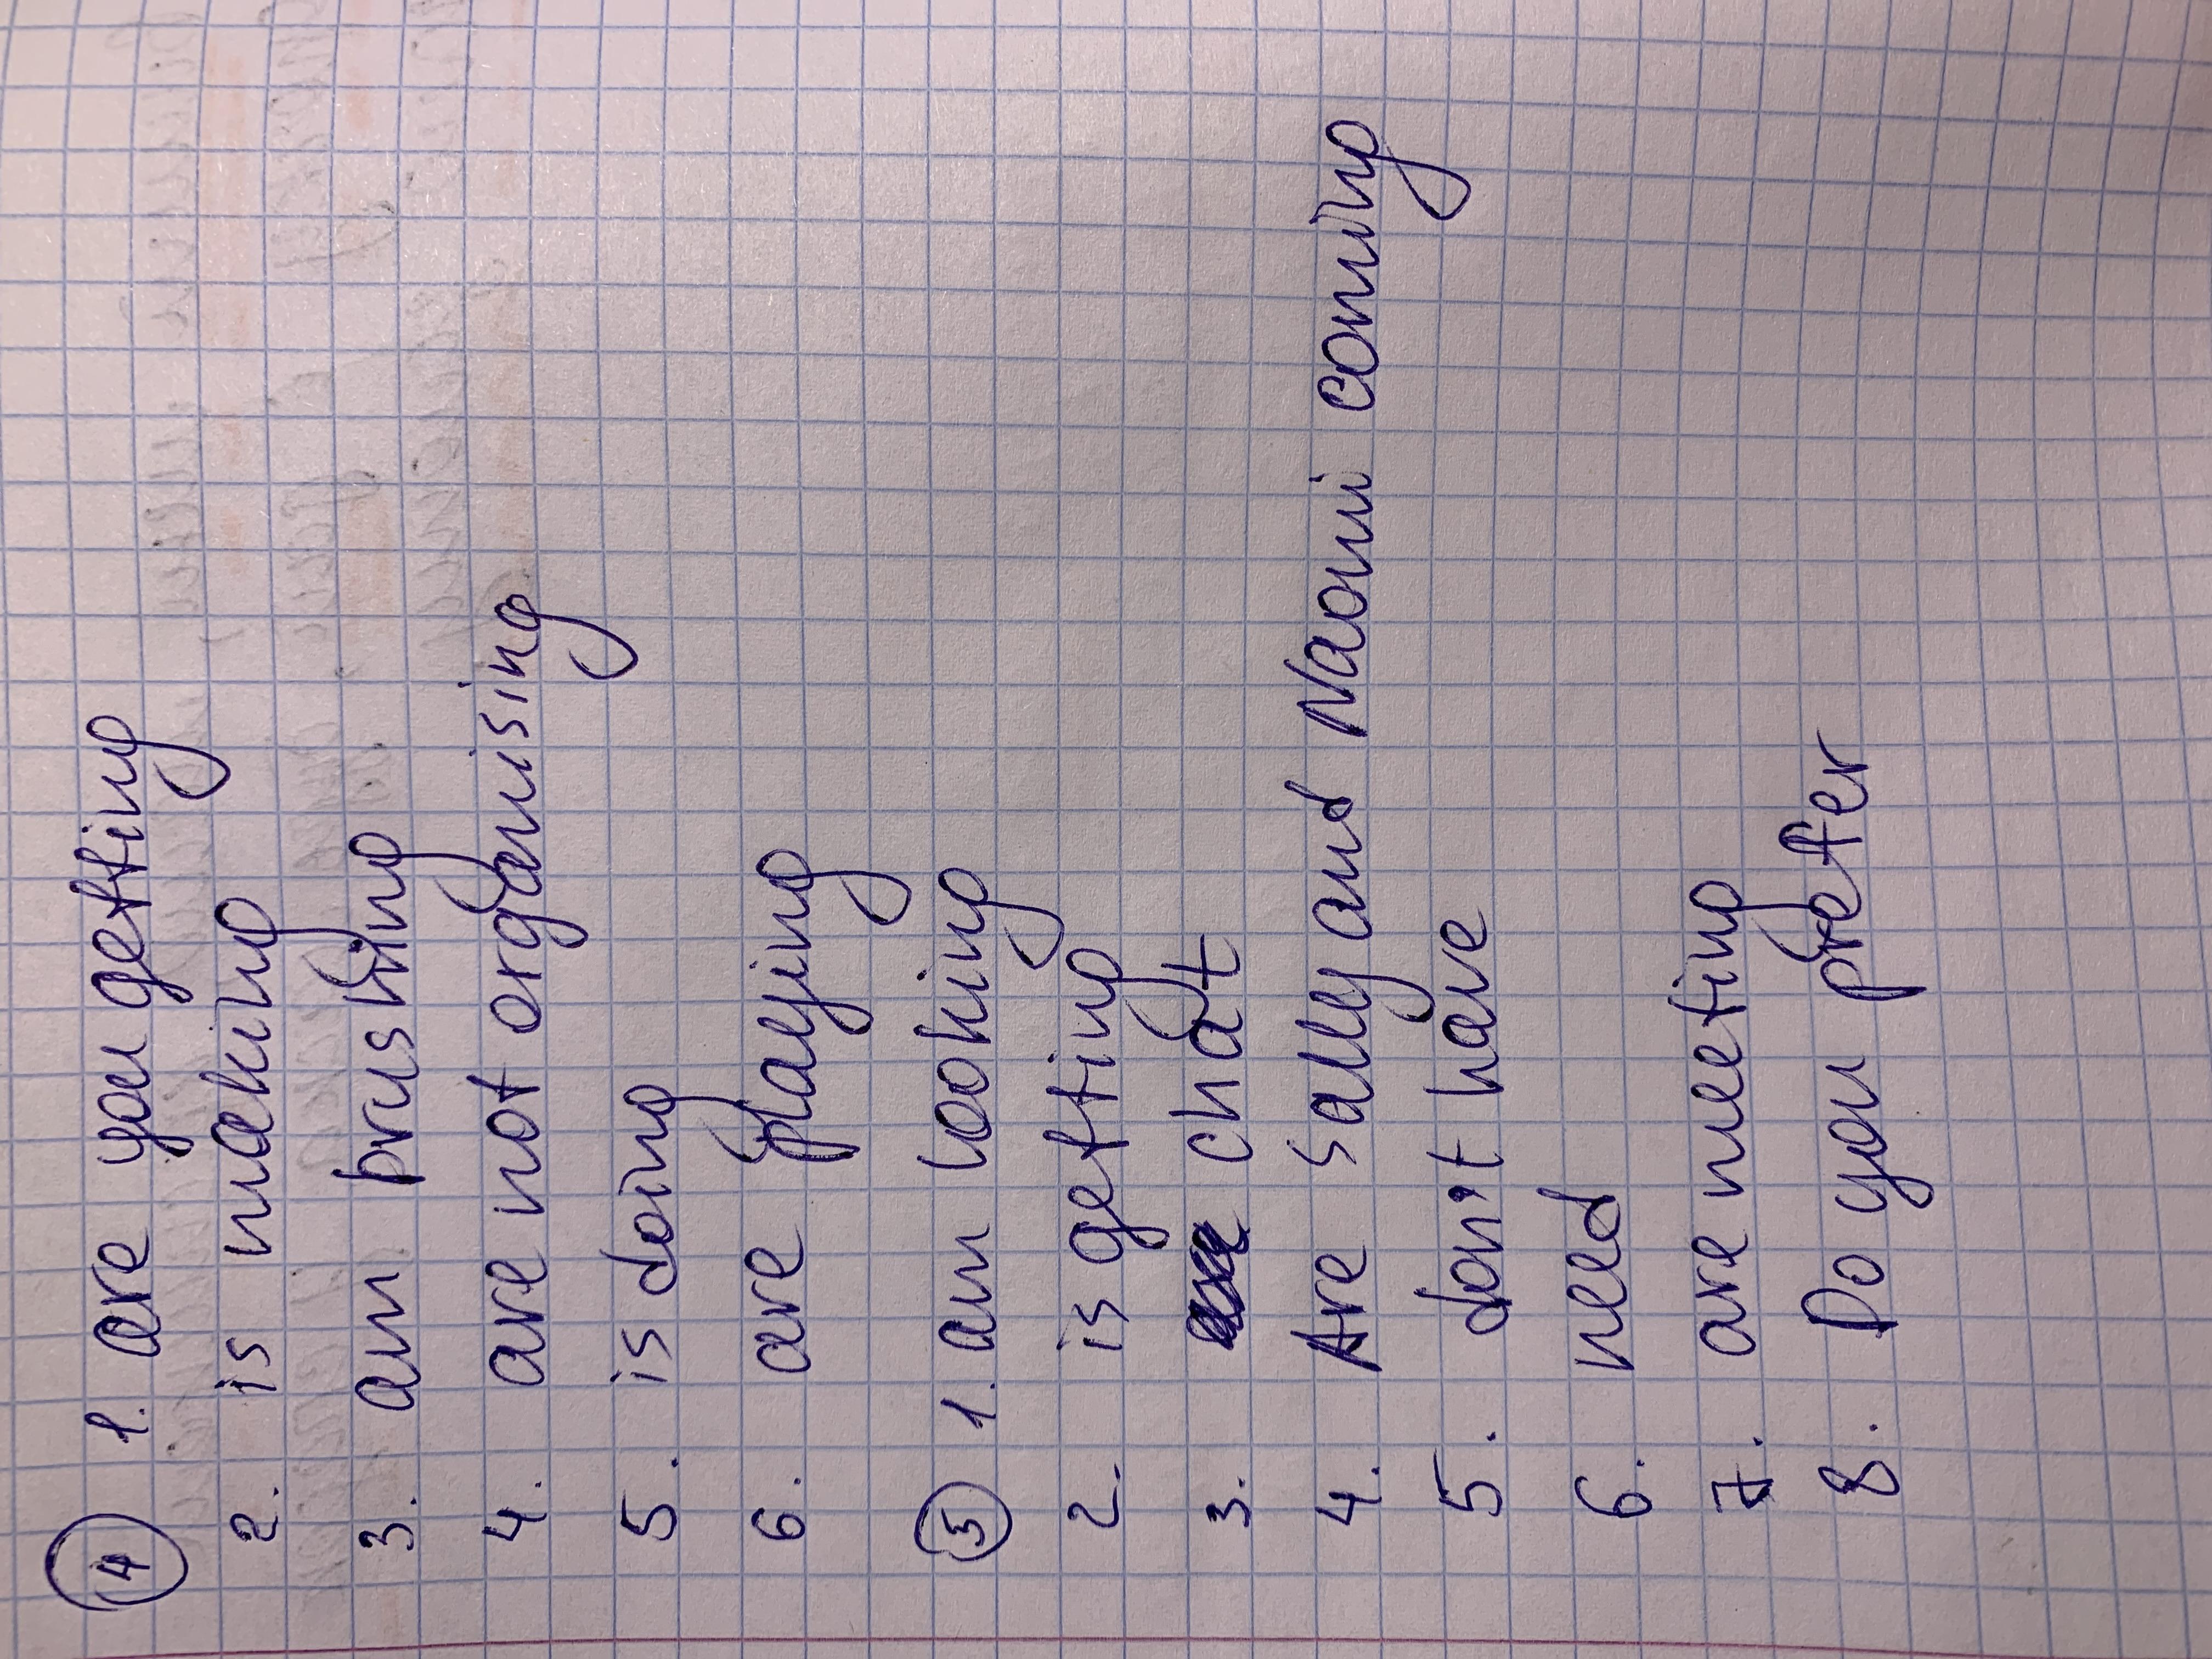 ④ 1. are you getting
2. is making
3. am brushing
4. are not organising
5. is doing
6. are playing
⑤ 1. am looking
2. is getting
3. chat
4. Are Sally and Naomi coming
5. don't have
6. need
7. are meeting
8. Do you prefer